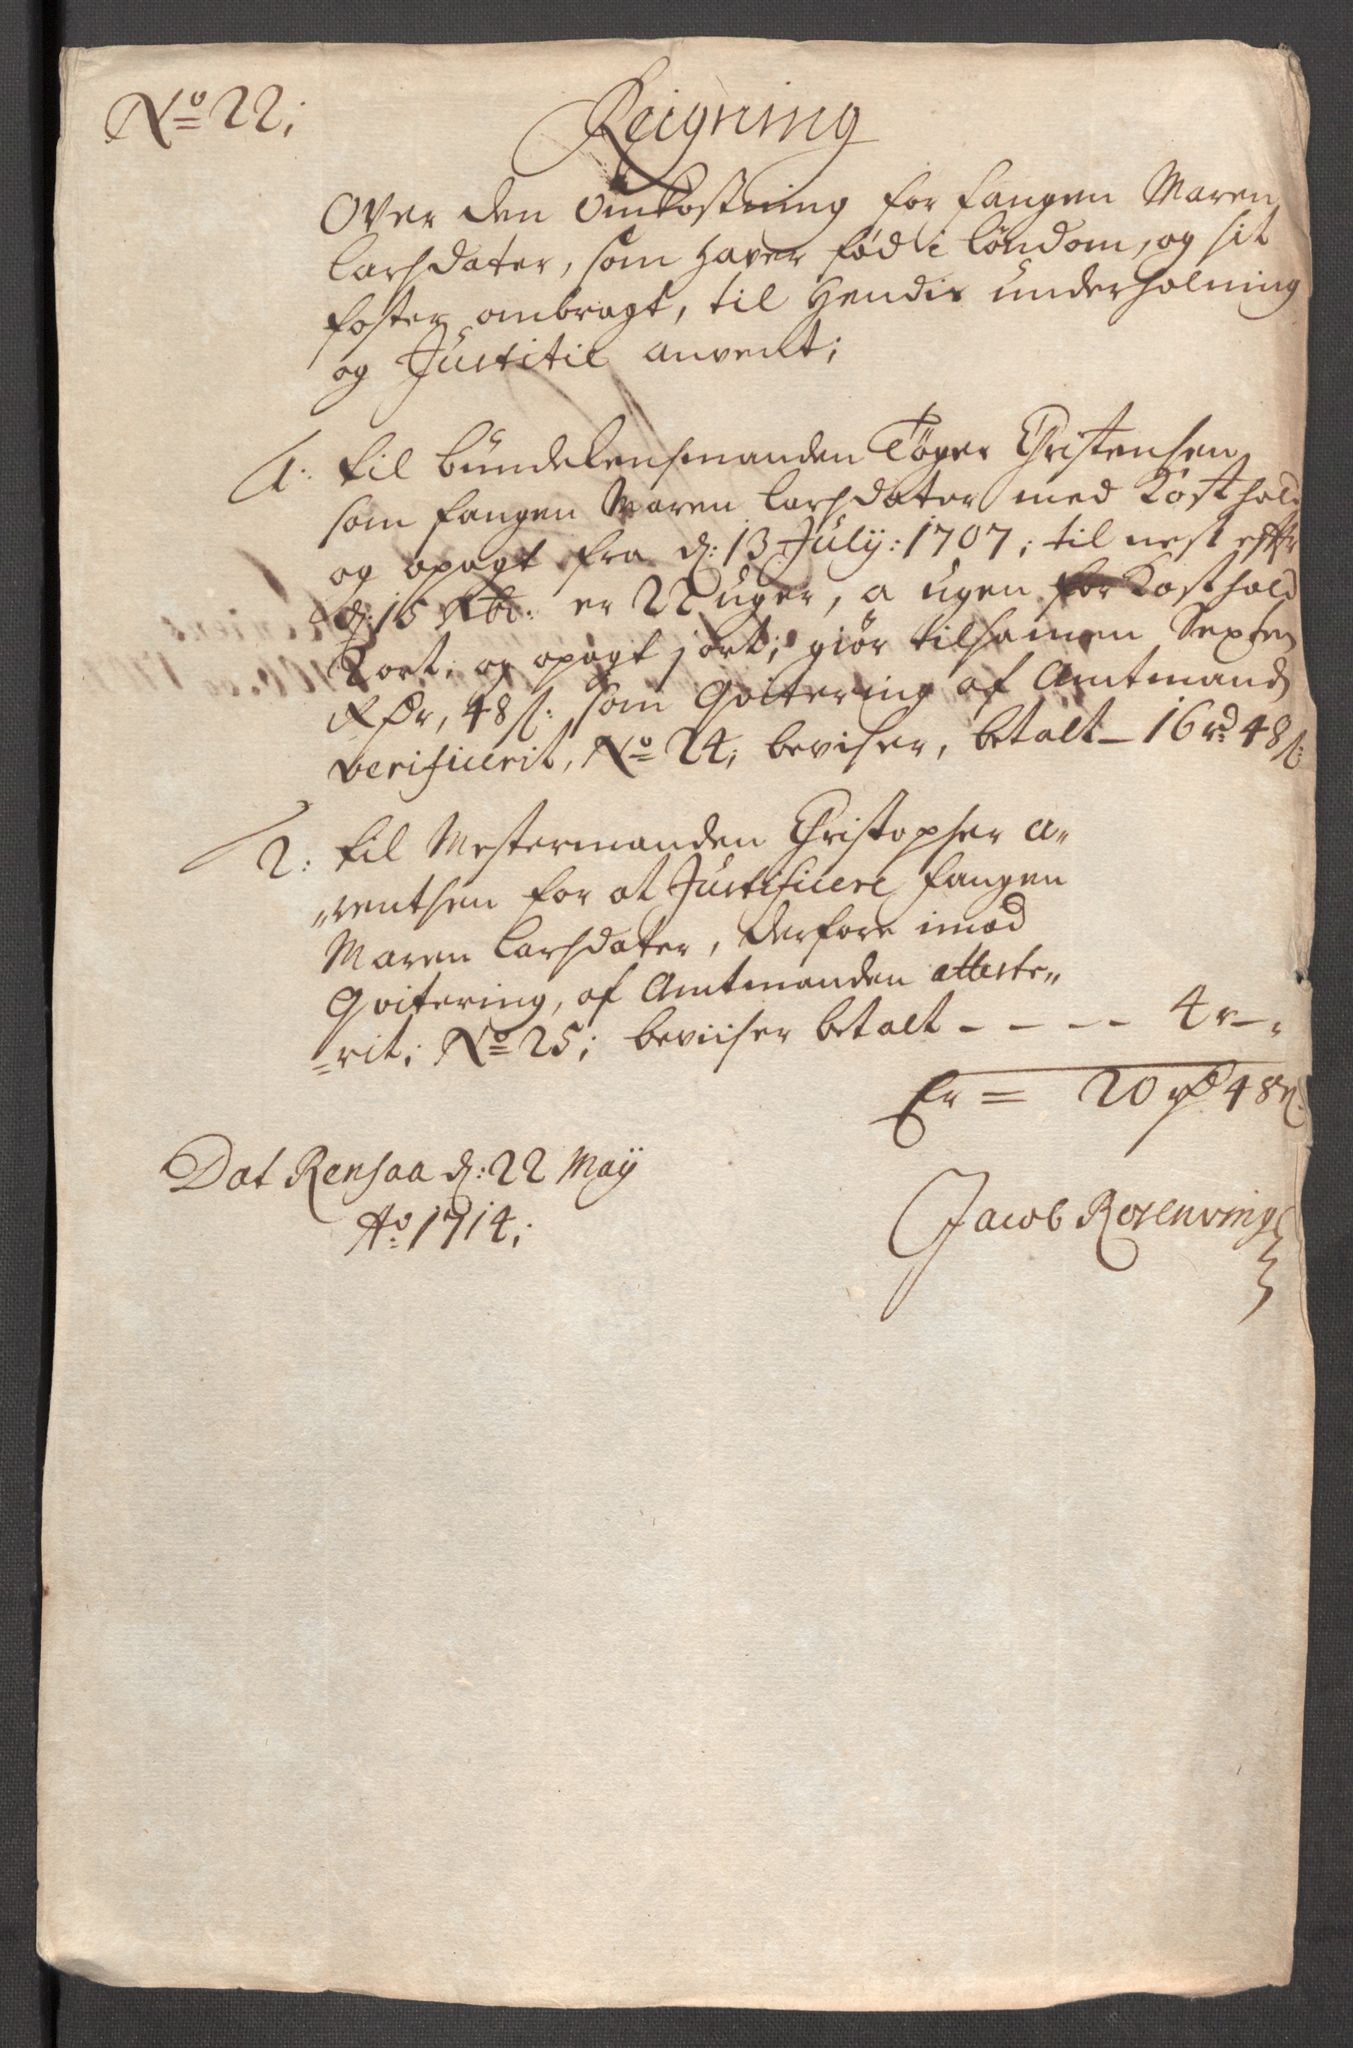 No 22;
Reigning
Over den Omkostning for fangen Maren
Larsdater, som haver fød i Löndom, og sit
foster ombragt, til Hendis underholning
og Justitie anvent;
1. til bündelensmanden Töger Christensen
som fangen Maren Larsdater med Kosthold
og opagt fra d: 13 July: 1707; til nest efftr
d: 15 Xbr: er 22 uger, a ugen for Kosthold
og opagt giör tilsamen Sexten
Rdr, 48 s: som Qvitering af Amtmand
verificerit, No 24; beviser, betalt - 16 rd 48 s:
2: til Mestermanden Christopher A„
„rentsen for at Justificere fangen
Maren Larsdater, derfore imod
Qvitering, af Amtmanden atteste„
„rit; No 25; beviiser betalt - - - - 4 r - „
Er = 20 rd 48 s:
Dat Rensaa d: 22 May
Ao 1714;
Jacob Rosenvinge